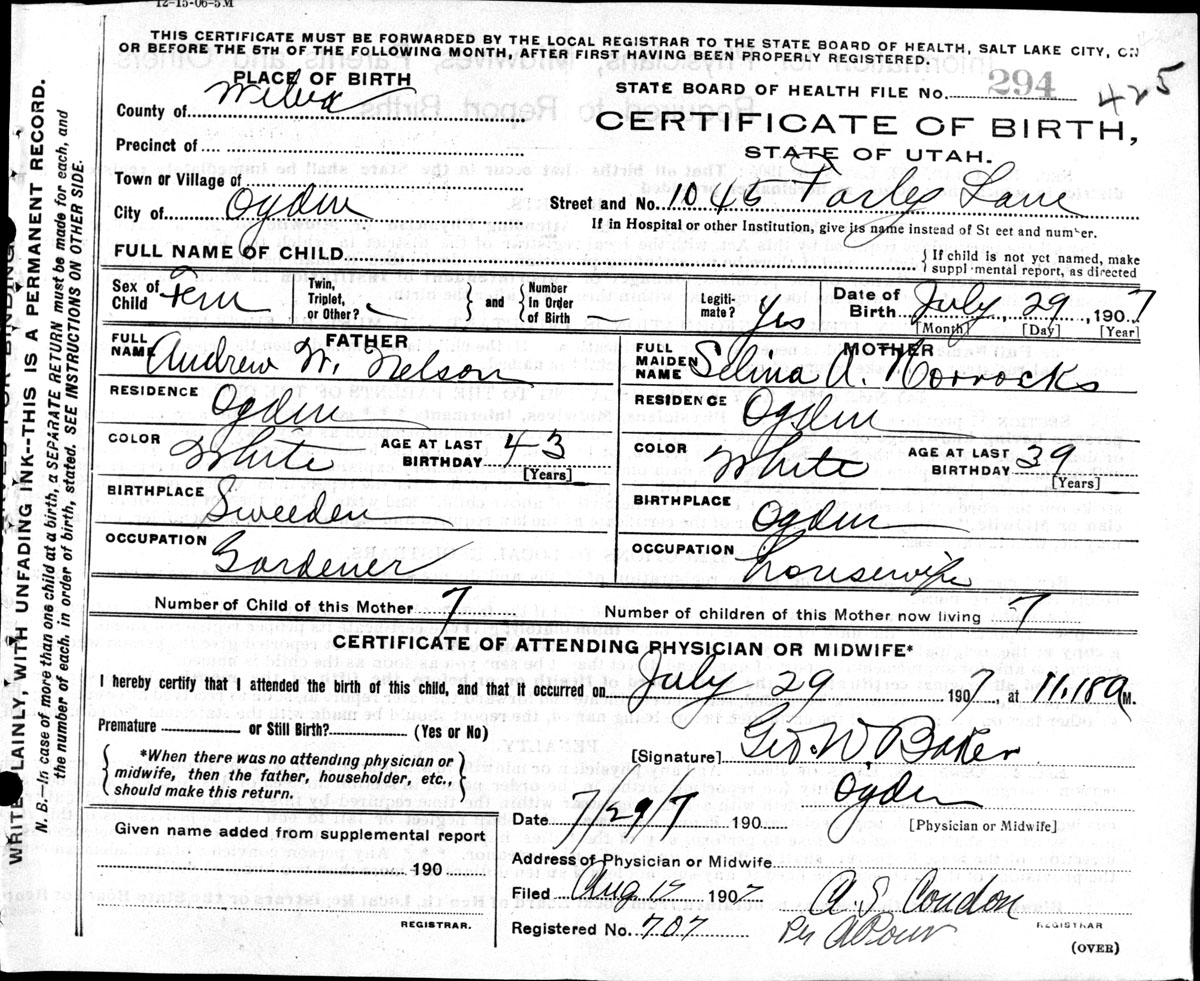 12-15-06-5M
THIS CERTIFICATE MUST BE FORWARDED BY THE LOCAL REGISTRAR TO THE STATE BOARD OF HEALTH, SALT LAKE CITY, ON
OR BEFORE THE 5TH OF THE FOLLOWING MONTH, AFTER FIRST HAVING BEEN PROPERLY REGISTERED.
PLACE OF BIRTH
STATE BOARD OF HEALTH FILE No. 294 425
County of
CERTIFICATE OF BIRTH,
STATE OF UTAH.
Precinct of
Town or Village of
City of Ogden Street and No. 1045 Farley Lane
If in Hospital or other Institution, give its name instead of St eet and number.
FULL NAME OF CHILD { If child is not yet named, make suppl mental report, as directed
Sex of Child Fem Twin, Triplet, or Other? — and Number in Order of Birth — Legiti- mate? Yes Date of Birth July 29, 1907
[Month] [Day] [Year]
FATHER
FULL NAME Andrew W. Nelson
RESIDENCE Ogden
COLOR White AGE AT LAST BIRTHDAY 43 [Years]
BIRTHPLACE Sweeden
OCCUPATION Gardener
MOTHER
FULL MAIDEN NAME Selma A. Horrocks
RESIDENCE Ogden
COLOR White AGE AT LAST BIRTHDAY 39 [Years]
BIRTHPLACE Ogden
OCCUPATION housewife
Number of Child of this Mother 7 Number of children of this Mother now living 7
CERTIFICATE OF ATTENDING PHYSICIAN OR MIDWIFE*
I hereby certify that I attended the birth of this child, and that it occurred on July 29 1907, at 11.18 a M.
Premature or Still Birth? (Yes or No)
*When there was no attending physician or
midwife, then the father, householder, etc.,
should make this return.
[Signature] Geo. W. Baker
Ogden
Date 7/29/7 190 [Physician or Midwife]
Given name added from supplemental report
190
REGISTRAR.
Address of Physician or Midwife
Filed Aug 12 1907 A. S. Condon
REGISTRAR
Registered No. 707 Per
(OVER)
WRITE PLAINLY WITH UNFADING INK--THIS IS A PERMANENT RECORD.
N. B. In case of more than one child at a birth, a SEPARATE RETURN must be made for each, and
the number of each, in order of birth, stated. SEE INSTRUCTIONS ON OTHER SIDE.